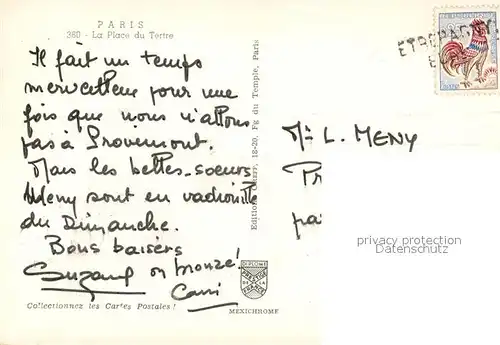 PARIS
380 - La Place du Tertre
Il fait un temps
merveilleux pour une
fois que nous n'allons
pas à Provemont.
Mais les belles-soeurs
Meny sont en vadrouille
du Dimanche.
Bons baisers
Suzanne on bronze!
Collectionnez les Cartes Postales !
MEXICHROME
DIPLOME
PRESTIGE
DE LA
FRANCE
18-20, Fg du Temple, Paris
ETREPAGNY
Mme L. MENY
Pr
pa
privacy protection
Datenschutz